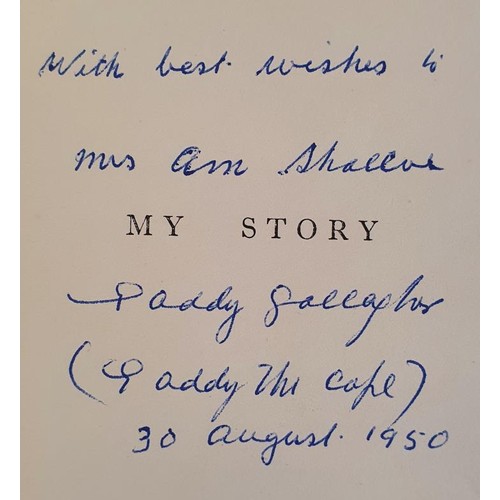 With best wishes to
Mrs Am
MY STORY
Paddy Gallagher
(Paddy The Cope)
30 August. 1950